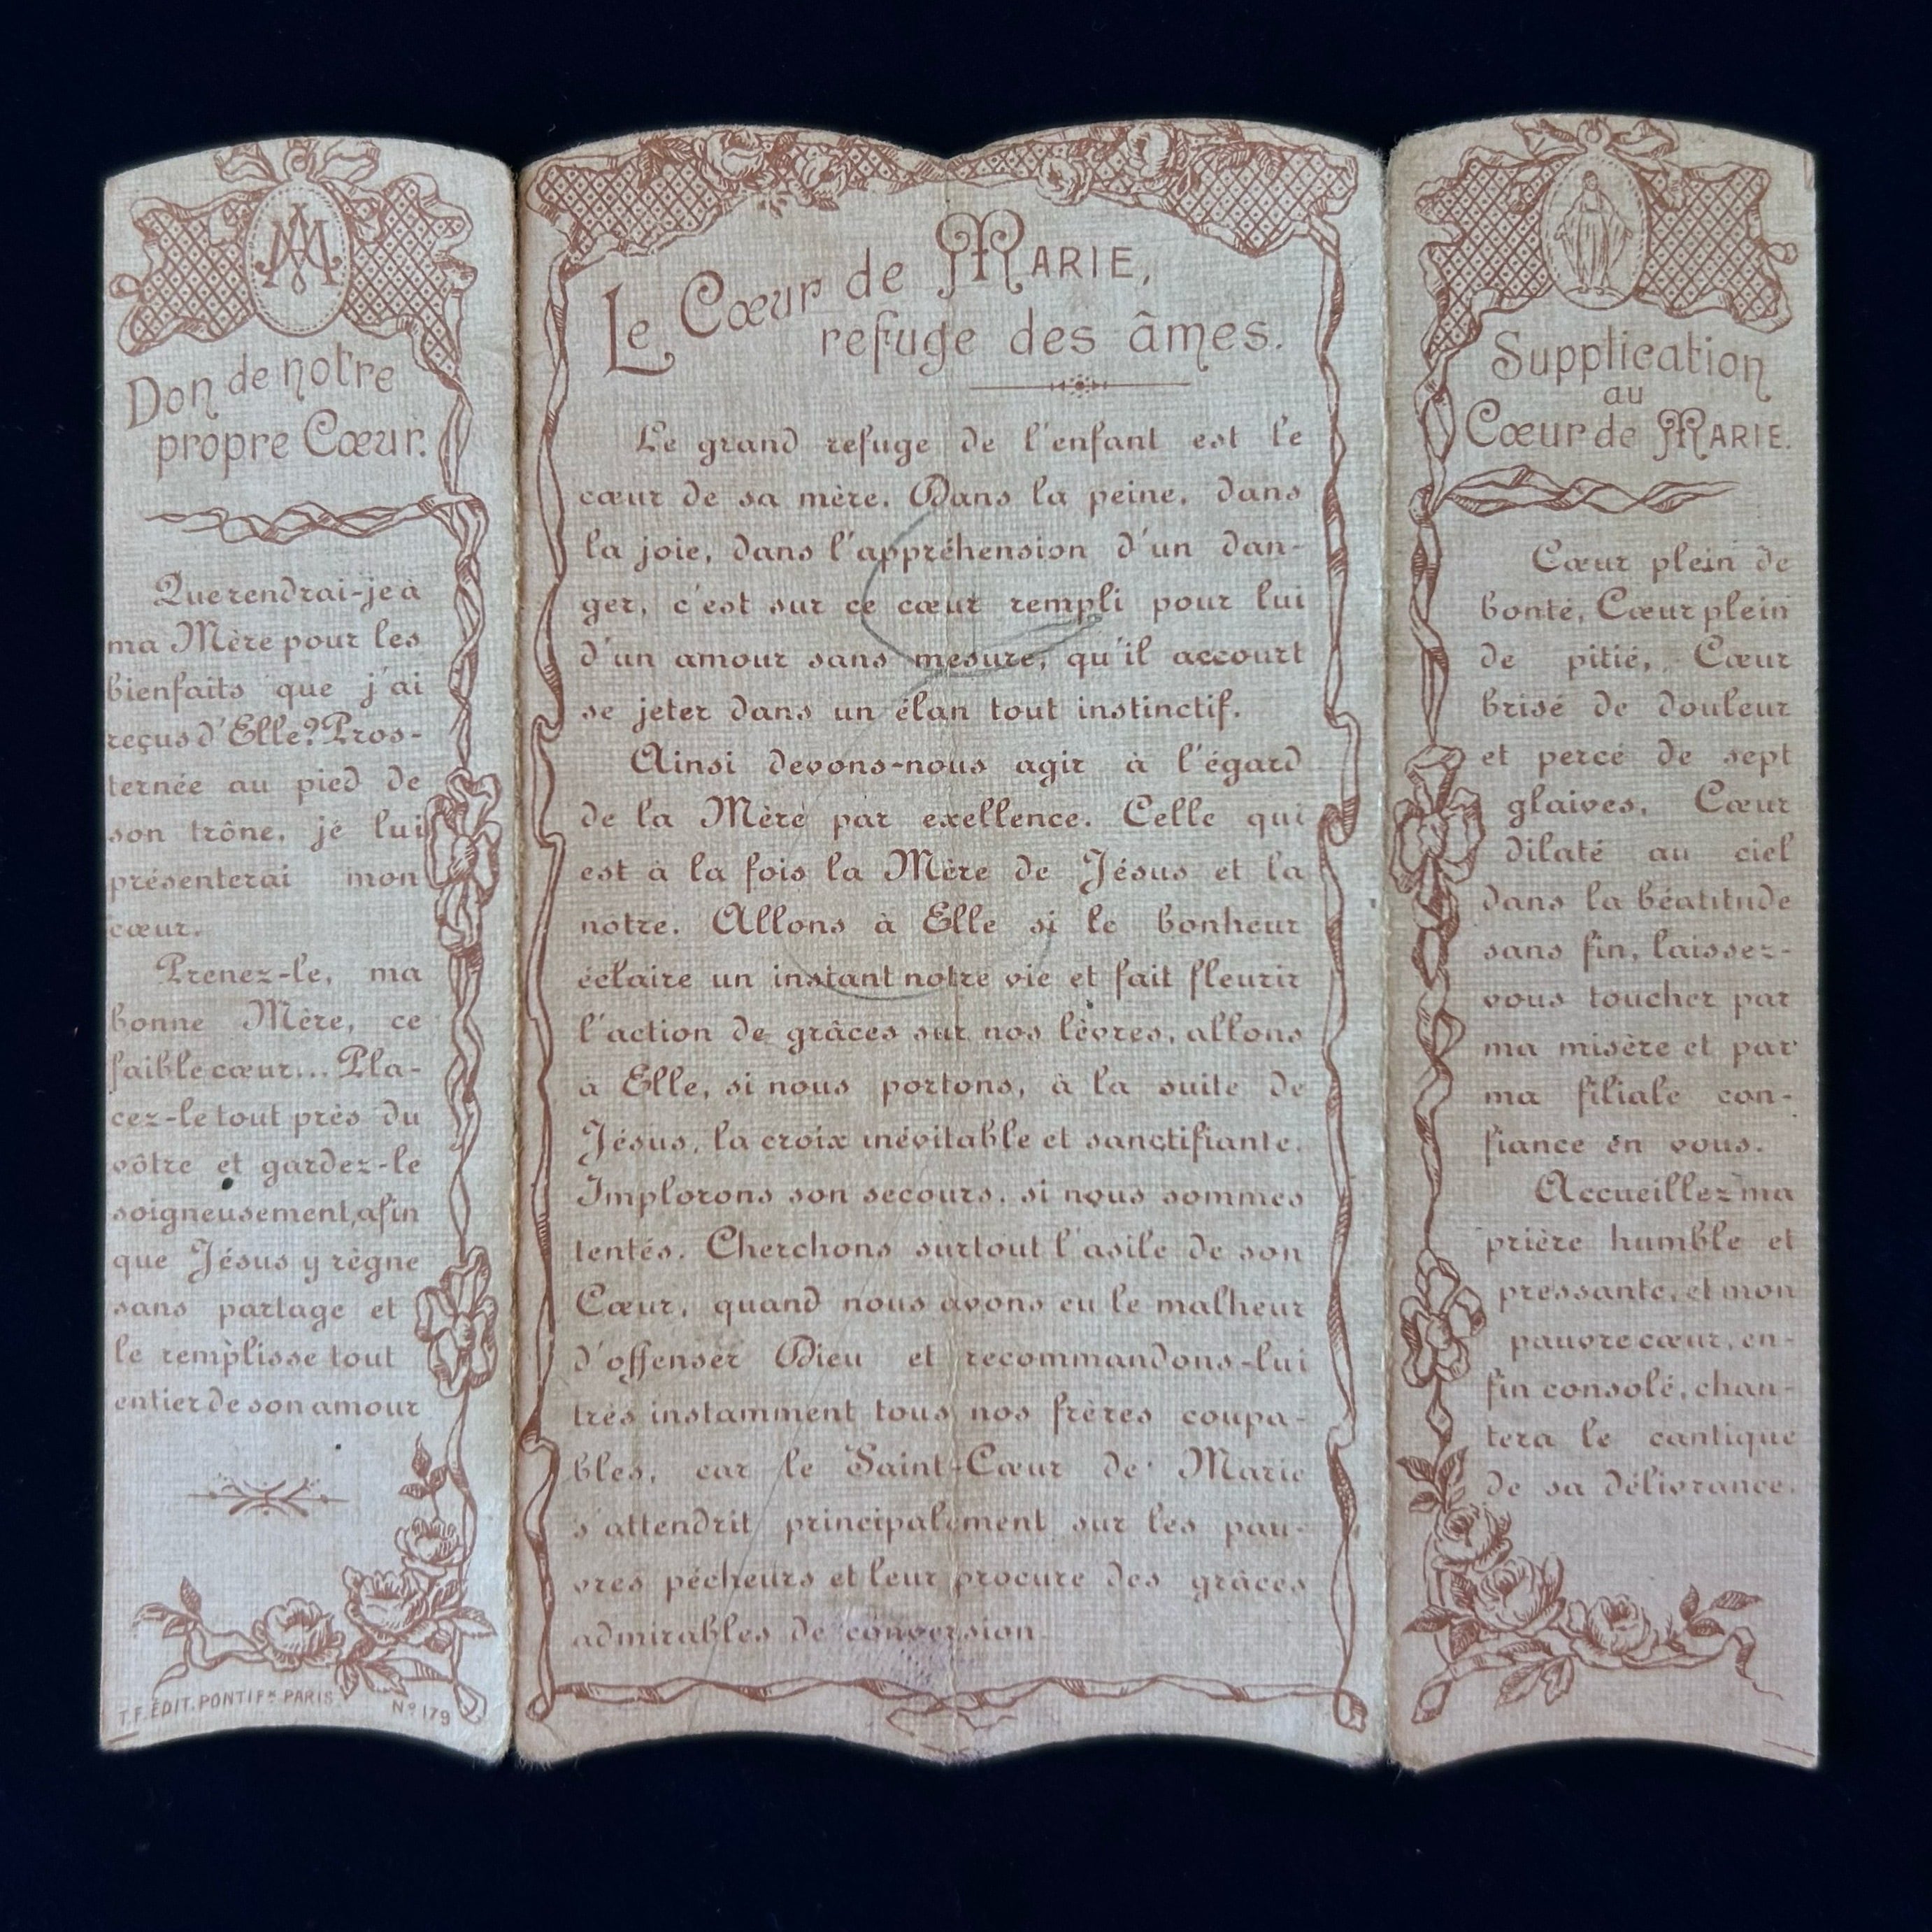 Don de notre
propre Cœur.
Que rendrai-je à
ma Mère pour les
bienfaits que j'ai
reçus d'Elle? Pros-
ternée au pied de
son trône, je lui
présenterai mon
cœur.
Prenez-le, ma
bonne Mère, ce
faible cœur... Pla-
cez-le tout près du
vôtre et gardez-le
soigneusement, afin
que Jésus y règne
sans partage et
le remplisse tout
entier de son amour
T.F. ÉDIT. PONTIFx PARIS No 179
Le Cœur de MARIE,
refuge des âmes.
Le grand refuge de l'enfant est le
cœur de sa mère. Dans la peine, dans
la joie, dans l'appréhension d'un dan-
ger, c'est sur ce cœur rempli pour lui
d'un amour sans mesure, qu'il accourt
se jeter dans un élan tout instinctif.
Ainsi devons-nous agir à l'égard
de la Mère par exellence. Celle qui
est à la fois la Mère de Jésus et la
notre. Allons à Elle si le bonheur
éclaire un instant notre vie et fait fleurir
l'action de grâces sur nos lèvres, allons
à Elle, si nous portons, à la suite de
Jésus, la croix inévitable et sanctifiante.
Implorons son secours, si nous sommes
tentés. Cherchons surtout l'asile de son
Cœur, quand nous avons eu le malheur
d'offenser Dieu et recommandons-lui
très instamment tous nos frères coupa-
bles, car le Saint-Cœur de Marie
s'attendrit principalement sur les pau-
vres pécheurs et leur procure des grâces
admirables de conversion.
Supplication
au
Cœur de MARIE.
Cœur plein de
bonté, Cœur plein
de pitié, Cœur
brisé de douleur
et percé de sept
glaives, Cœur
dilaté au ciel
dans la béatitude
sans fin, laissez-
vous toucher par
ma misère et par
ma filiale con-
fiance en vous.
Accueillez ma
prière humble et
pressante, et mon
pauvre cœur, en-
fin consolé, chan-
tera le cantique
de sa délivrance.